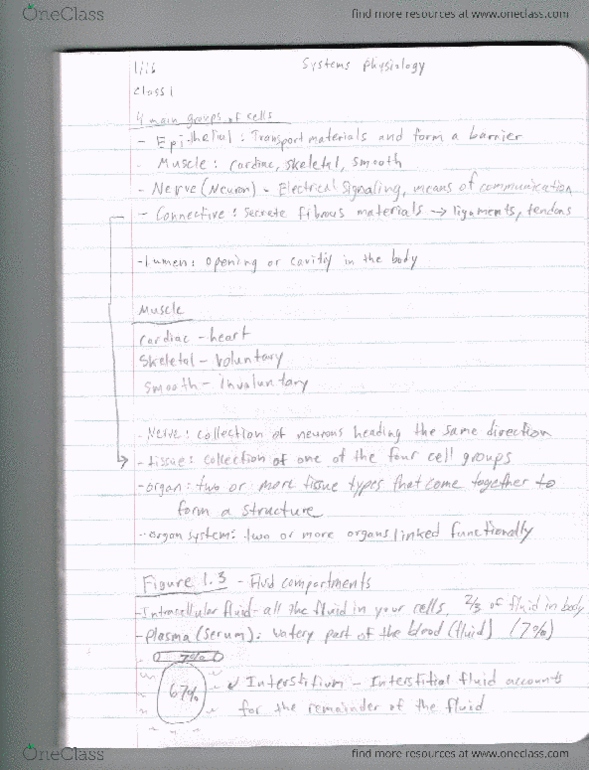 OneClass
find more resources at www.oneclass.com
1/16
Systems Physiology
Class 1
4 main groups of cells
- Epithelial: Transport materials and form a barrier
- Muscle: cardiac, skeletal, smooth
- Nerve (Neuron) - Electrical Signaling, means of communication
- Connective: secrete fibrous materials → ligaments, tendons
- lumen: opening or cavitiy in the body
Muscle
cardiac - heart
Skeletal - Voluntary
Smooth - involuntary
- Nerve: collection of neurons heading the same direction
- tissue: collection of one of the four cell groups
- organ: two or more tissue types that come together to
form a structure
- organ system: two or more organs linked functionally
Figure 1.3 - Fluid compartments
- Intracellular fluid - all the fluid in your cells, 2/3 of fluid in body
- Plasma (serum): watery part of the blood (fluid) (7%)
7%
67%
✓ Interstitium - Interstitial fluid accounts
for the remainder of the fluid
OneClass
find more resources at www.oneclass.com